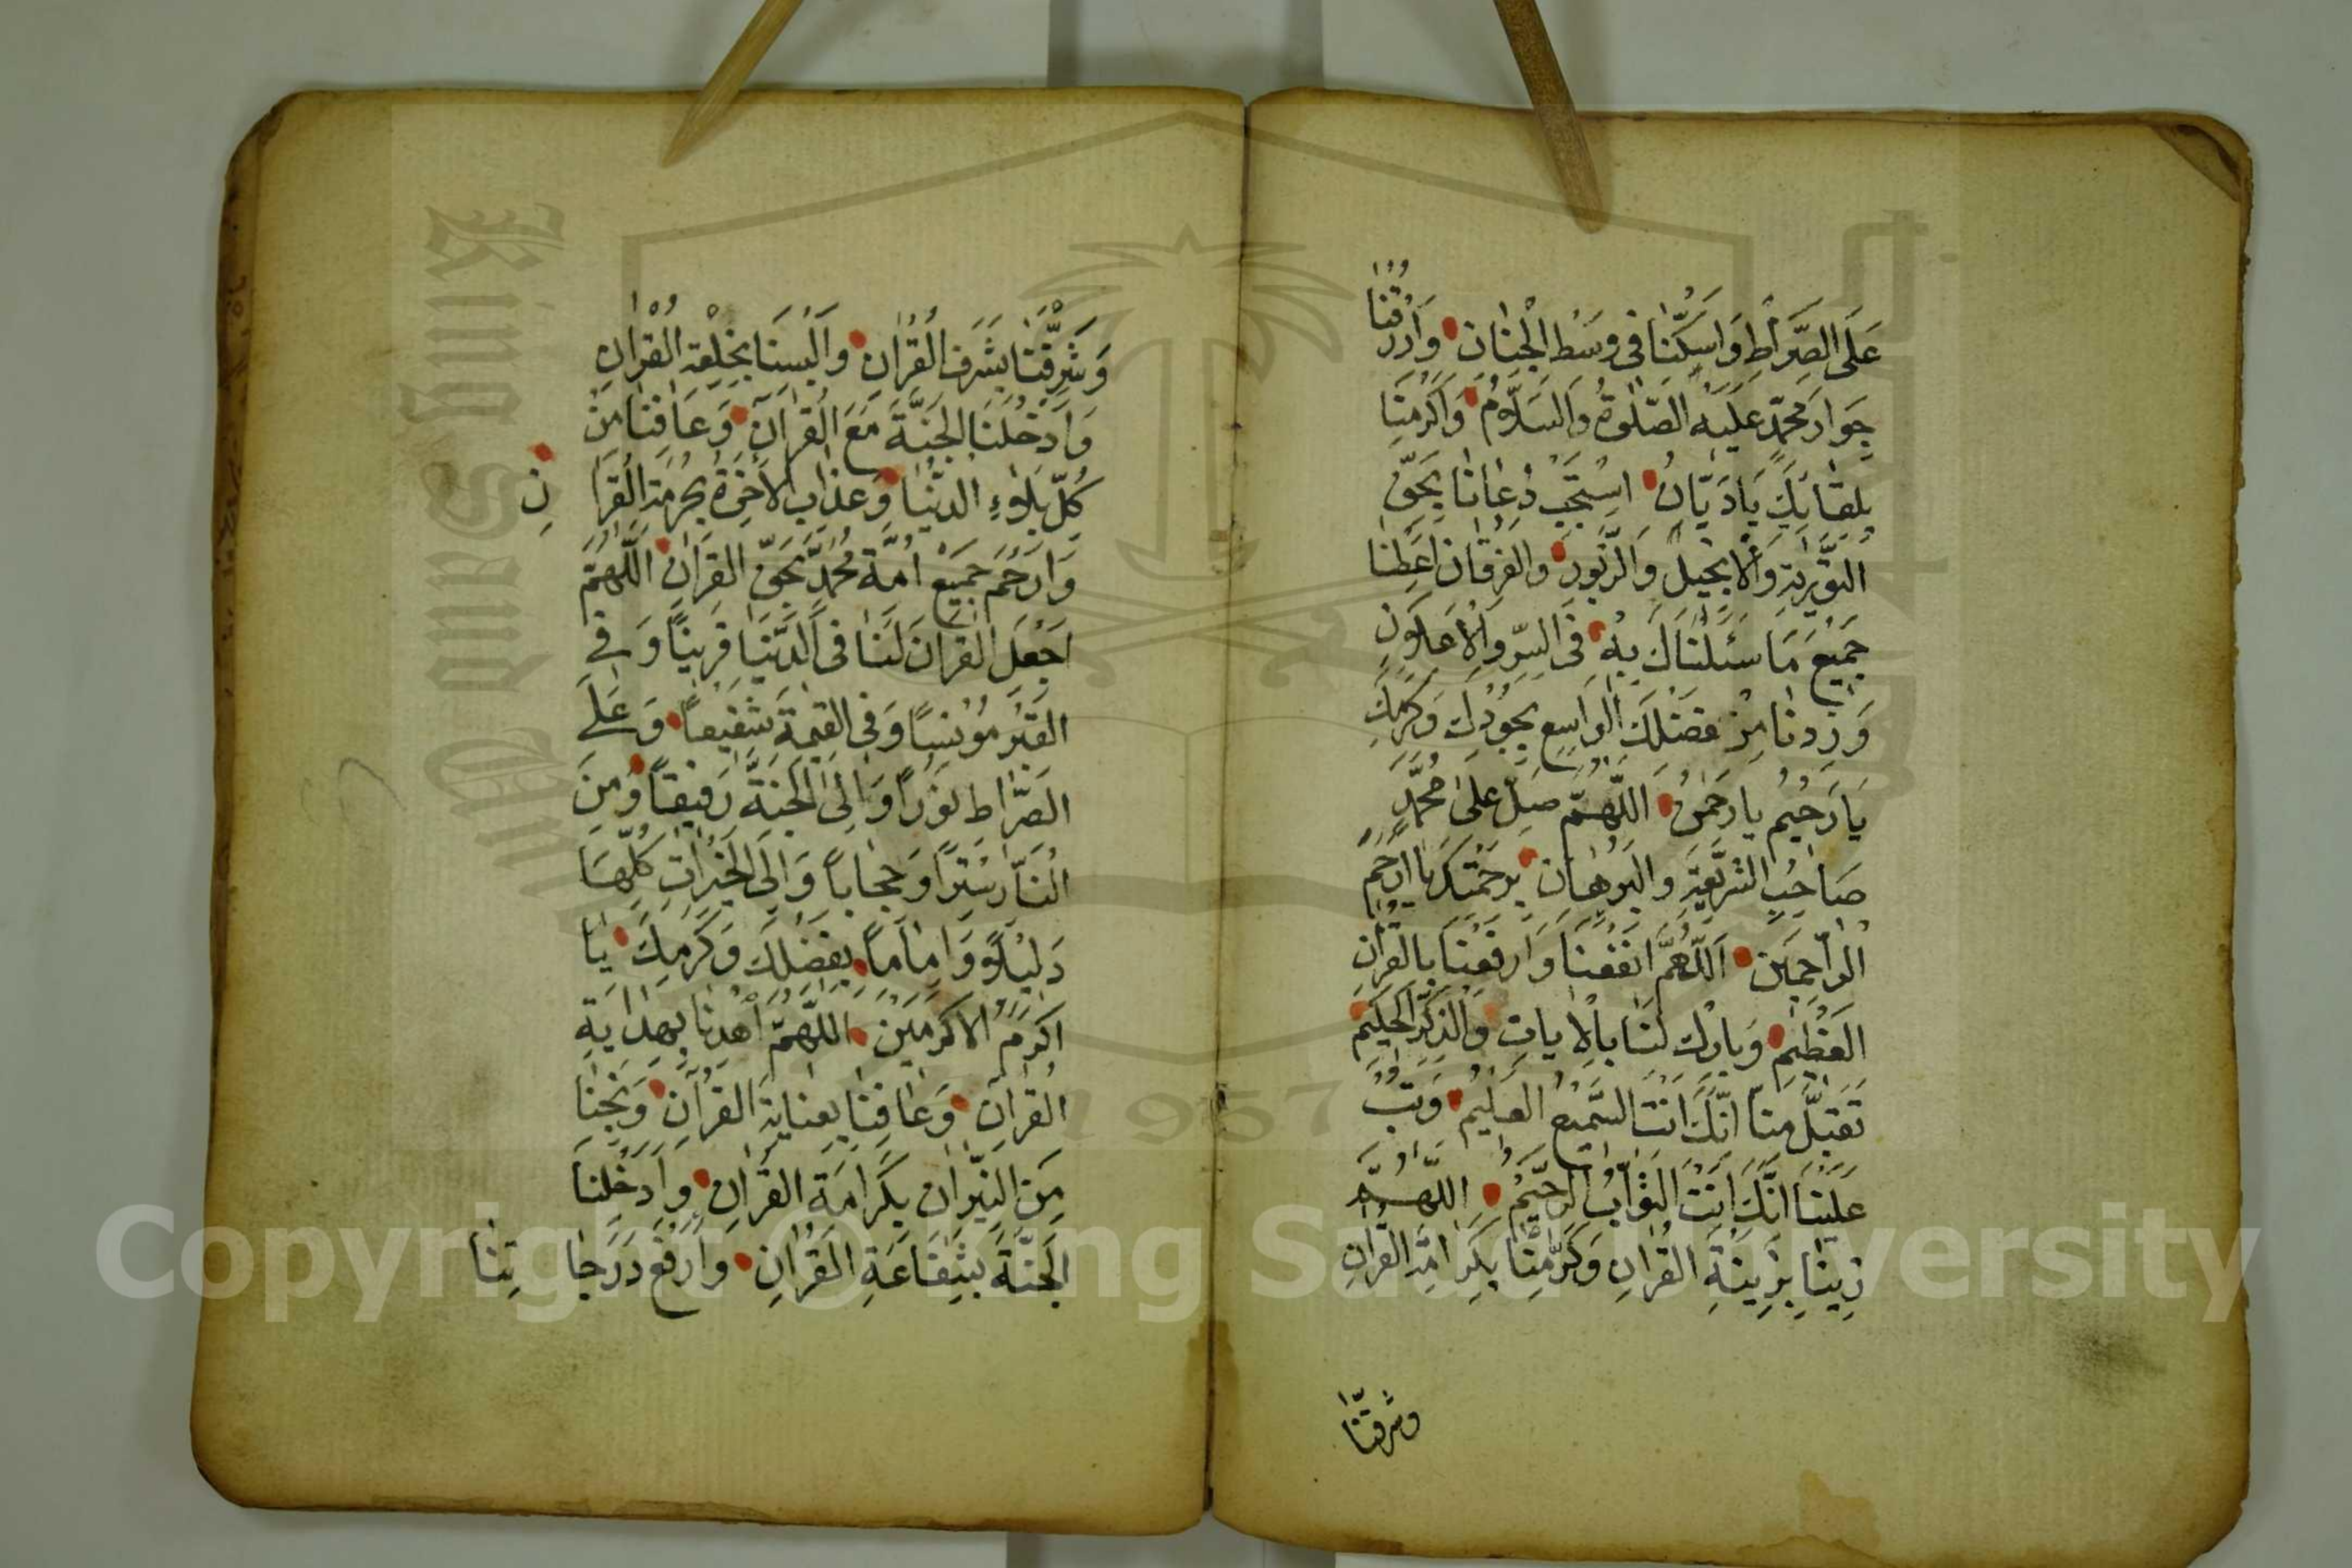 عَلَى الصِّرَاطِ وَاَسْكِنَّا فِى وَسْطِ الْجِنَانِ وَارْزُقْنَا
جِوَارَ مُحَمَّدٍ عَلَيْهِ الصَّلٰوةُ وَالسَّلَامُ وَاَكْرِمْنَا
بِلِقَائِكَ يَا دَيَّانُ اِسْتَجِبْ دُعَانَا بِحَقِّ
التَّوْرٰيةِ وَالْاِنْجِيلِ وَالزَّبُورِ وَالْفُرْقَانِ اَعْطِنَا
جَمِيعَ مَا سَئَلْنَاكَ بِهِ فِى السِّرِّ وَالْاِعْلَانِ
وَزِدْنَا مِنْ فَضْلِكَ الْوَاسِعِ بِجُودِكَ وَكَرَمِكَ
يَا رَحِيمُ يَا رَحْمٰنُ اَللّٰهُمَّ صَلِّ عَلٰى مُحَمَّدٍ
صَاحِبِ الشَّرِيعَةِ وَالْبُرْهَانِ بِرَحْمَتِكَ يَا اَرْحَمَ
الرَّاحِمِينَ اَللّٰهُمَّ انْفَعْنَا وَارْفَعْنَا بِالْقُرْاٰنِ
الْعَظِيمِ وَبَارِكْ لَنَا بِالْاٰيَاتِ وَالذِّكْرِ الْحَكِيمِ
تَقَبَّلْ مِنَّا اِنَّكَ اَنْتَ السَّمِيعُ الْعَلِيمُ وَتُبْ
عَلَيْنَا اِنَّكَ اَنْتَ التَّوَّابُ الرَّحِيمُ اَللّٰهُمَّ
زَيِّنَّا بِزِينَةِ الْقُرْاٰنِ وَكَرِّمْنَا بِكَرَامَةِ الْقُرْاٰنِ
وشرفنا
وَشَرِّفْنَا بِشَرَفِ الْقُرْاٰنِ وَاَلْبِسْنَا بِخِلْعَةِ الْقُرْاٰنِ
وَاَدْخِلْنَا الْجَنَّةَ مَعَ الْقُرْاٰنِ وَعَافِنَا مِنْ
كُلِّ بَلَاءِ الدُّنْيَا وَعَذَابِ الْاٰخِرَةِ بِحُرْمَةِ الْقُرْاٰنِ
وَارْحَمْ جَمِيعَ اُمَّةِ مُحَمَّدٍ بِحَقِّ الْقُرْاٰنِ اَللّٰهُمَّ
اجْعَلِ الْقُرْاٰنَ لَنَا فِى الدُّنْيَا قَرِينًا وَفِى
الْقَبْرِ مُونِسًا وَفِى الْقِيٰمَةِ شَفِيعًا وَعَلَى
الصِّرَاطِ نُورًا وَاِلَى الْجَنَّةِ رَفِيقًا وَمِنَ
النَّارِ سِتْرًا وَحِجَابًا وَاِلَى الْخَيْرَاتِ كُلِّهَا
دَلِيلًا وَاِمَامًا بِفَضْلِكَ وَكَرَمِكَ يَا
اَكْرَمَ الْاَكْرَمِينَ اَللّٰهُمَّ اهْدِنَا بِهِدَايَةِ
الْقُرْاٰنِ وَعَافِنَا بِعِنَايَةِ الْقُرْاٰنِ وَنَجِّنَا
مِنَ النِّيرَانِ بِكَرَامَةِ الْقُرْاٰنِ وَاَدْخِلْنَا
الْجَنَّةَ بِشَفَاعَةِ الْقُرْاٰنِ وَارْفَعْ دَرَجَاتِنَا
1957
Copyright © King Saud University